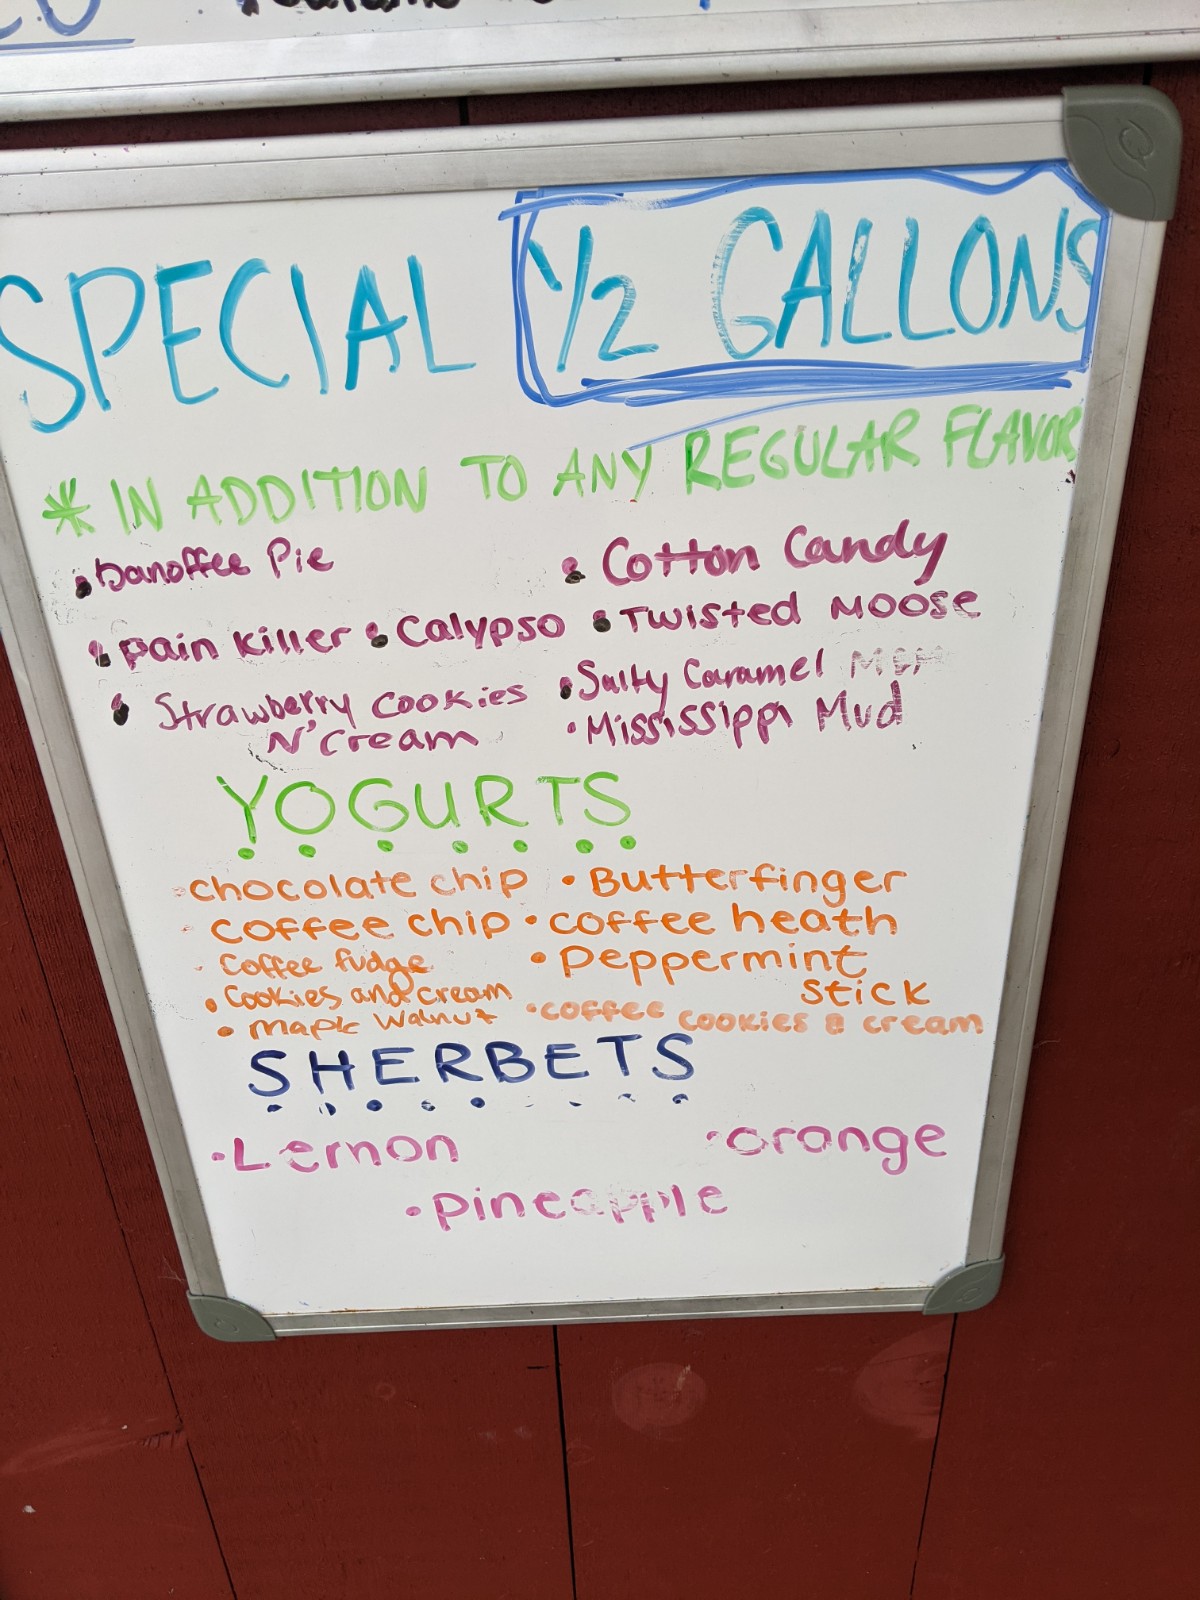 SPECIAL 1/2 GALLONS
* IN ADDITION TO ANY REGULAR FLAVOR
• banoffee Pie
• Cotton Candy
• Pain Killer • Calypso
• Twisted Moose
• Strawberry Cookies
N' Cream
• Salty Caramel
• Mississippi Mud
YOGURTS
• chocolate chip • Butterfinger
• coffee chip • coffee heath
• Coffee fudge
• Peppermint
stick
• Cookies and cream
• Maple Walnut
• coffee cookies & cream
SHERBETS
• Lemon
• orange
• pineapple